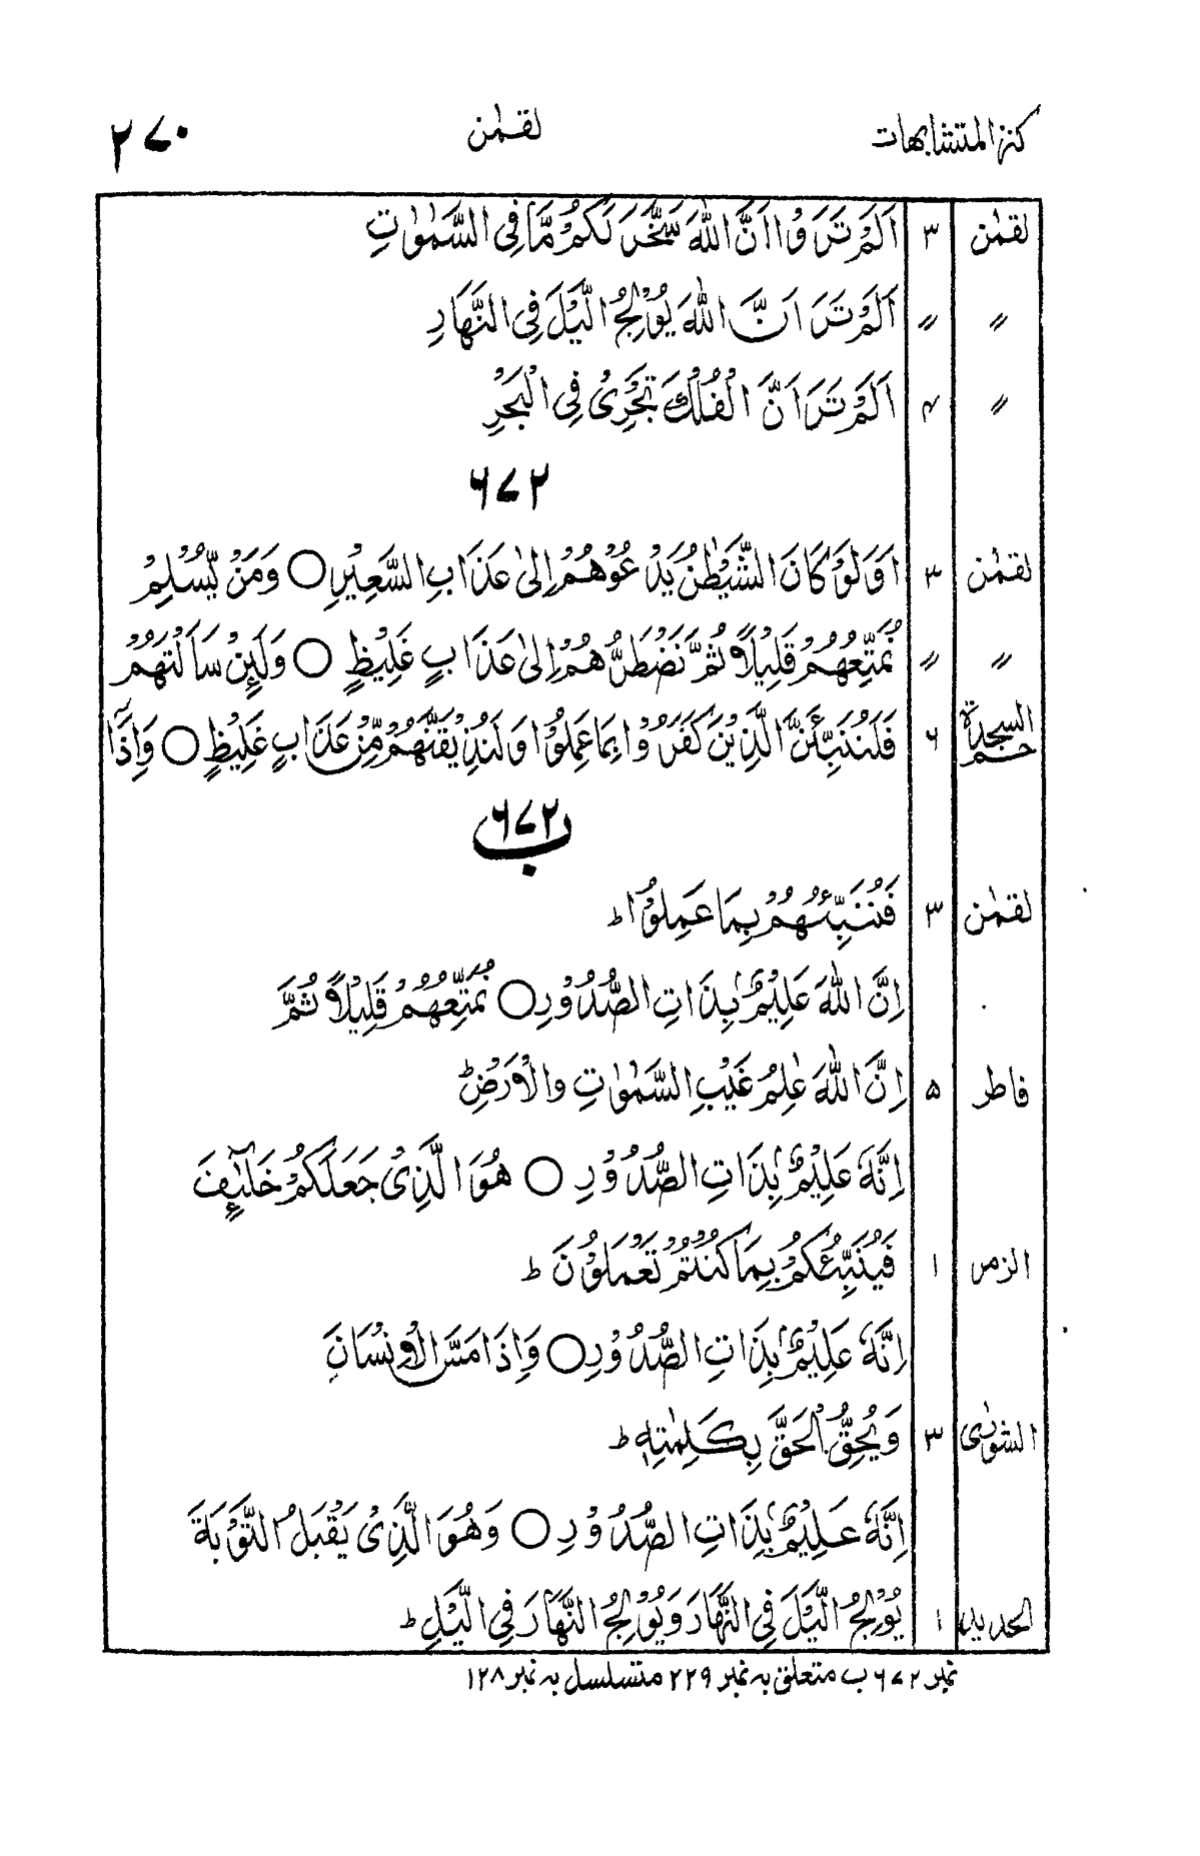 کنز المتشابہات لقمٰن ۲۷۰
لقمٰن ۳ اَلَمْ تَرَوْا اَنَّ اللّٰهَ سَخَّرَ لَكُمْ مَّا فِى السَّمٰوٰتِ
〃 〃 اَلَمْ تَرَ اَنَّ اللّٰهَ يُوْلِجُ الَّيْلَ فِى النَّهَارِ
〃 ۴ اَلَمْ تَرَ اَنَّ الْفُلْكَ تَجْرِىْ فِى الْبَحْرِ
۶۷۲
لقمٰن ۳ اَوَلَوْ كَانَ الشَّيْطٰنُ يَدْعُوْهُمْ اِلٰى عَذَابِ السَّعِيْرِ ○ وَمَنْ يُّسْلِمْ
〃 〃 نُمَتِّعُهُمْ قَلِيْلًا ثُمَّ نَضْطَرُّهُمْ اِلٰى عَذَابٍ غَلِيْظٍ ○ وَلَئِنْ سَاَلْتَهُمْ
حٰم السجدة ۶ فَلَنُنَبِّئَنَّ الَّذِيْنَ كَفَرُوْا بِمَا عَمِلُوْا وَلَنُذِيْقَنَّهُمْ مِّنْ عَذَابٍ غَلِيْظٍ ○ وَاِذَآ
۶۷۲ ب
لقمٰن ۳ فَنُنَبِّئُهُمْ بِمَا عَمِلُوْا ط
اِنَّ اللّٰهَ عَلِيْمٌۢ بِذَاتِ الصُّدُوْرِ ○ نُمَتِّعُهُمْ قَلِيْلًا ثُمَّ
فاطر ۵ اِنَّ اللّٰهَ عٰلِمُ غَيْبِ السَّمٰوٰتِ وَالْاَرْضِ ط
اِنَّهٗ عَلِيْمٌۢ بِذَاتِ الصُّدُوْرِ ○ هُوَ الَّذِىْ جَعَلَكُمْ خَلٰٓئِفَ
الزمر ۱ فَيُنَبِّئُكُمْ بِمَا كُنْتُمْ تَعْمَلُوْنَ ط
اِنَّهٗ عَلِيْمٌۢ بِذَاتِ الصُّدُوْرِ ○ وَاِذَا مَسَّ الْاِنْسَانَ
الشورٰى ۳ وَيُحِقُّ الْحَقَّ بِكَلِمٰتِهٖ ط
اِنَّهٗ عَلِيْمٌۢ بِذَاتِ الصُّدُوْرِ ○ وَهُوَ الَّذِىْ يَقْبَلُ التَّوْبَةَ
الحديد ۱ يُوْلِجُ الَّيْلَ فِى النَّهَارِ وَيُوْلِجُ النَّهَارَ فِى الَّيْلِ ط
نمبر ۶۷۲ ب متعلق بہ نمبر ۲۲۹ متسلسل بہ نمبر ۱۲۸